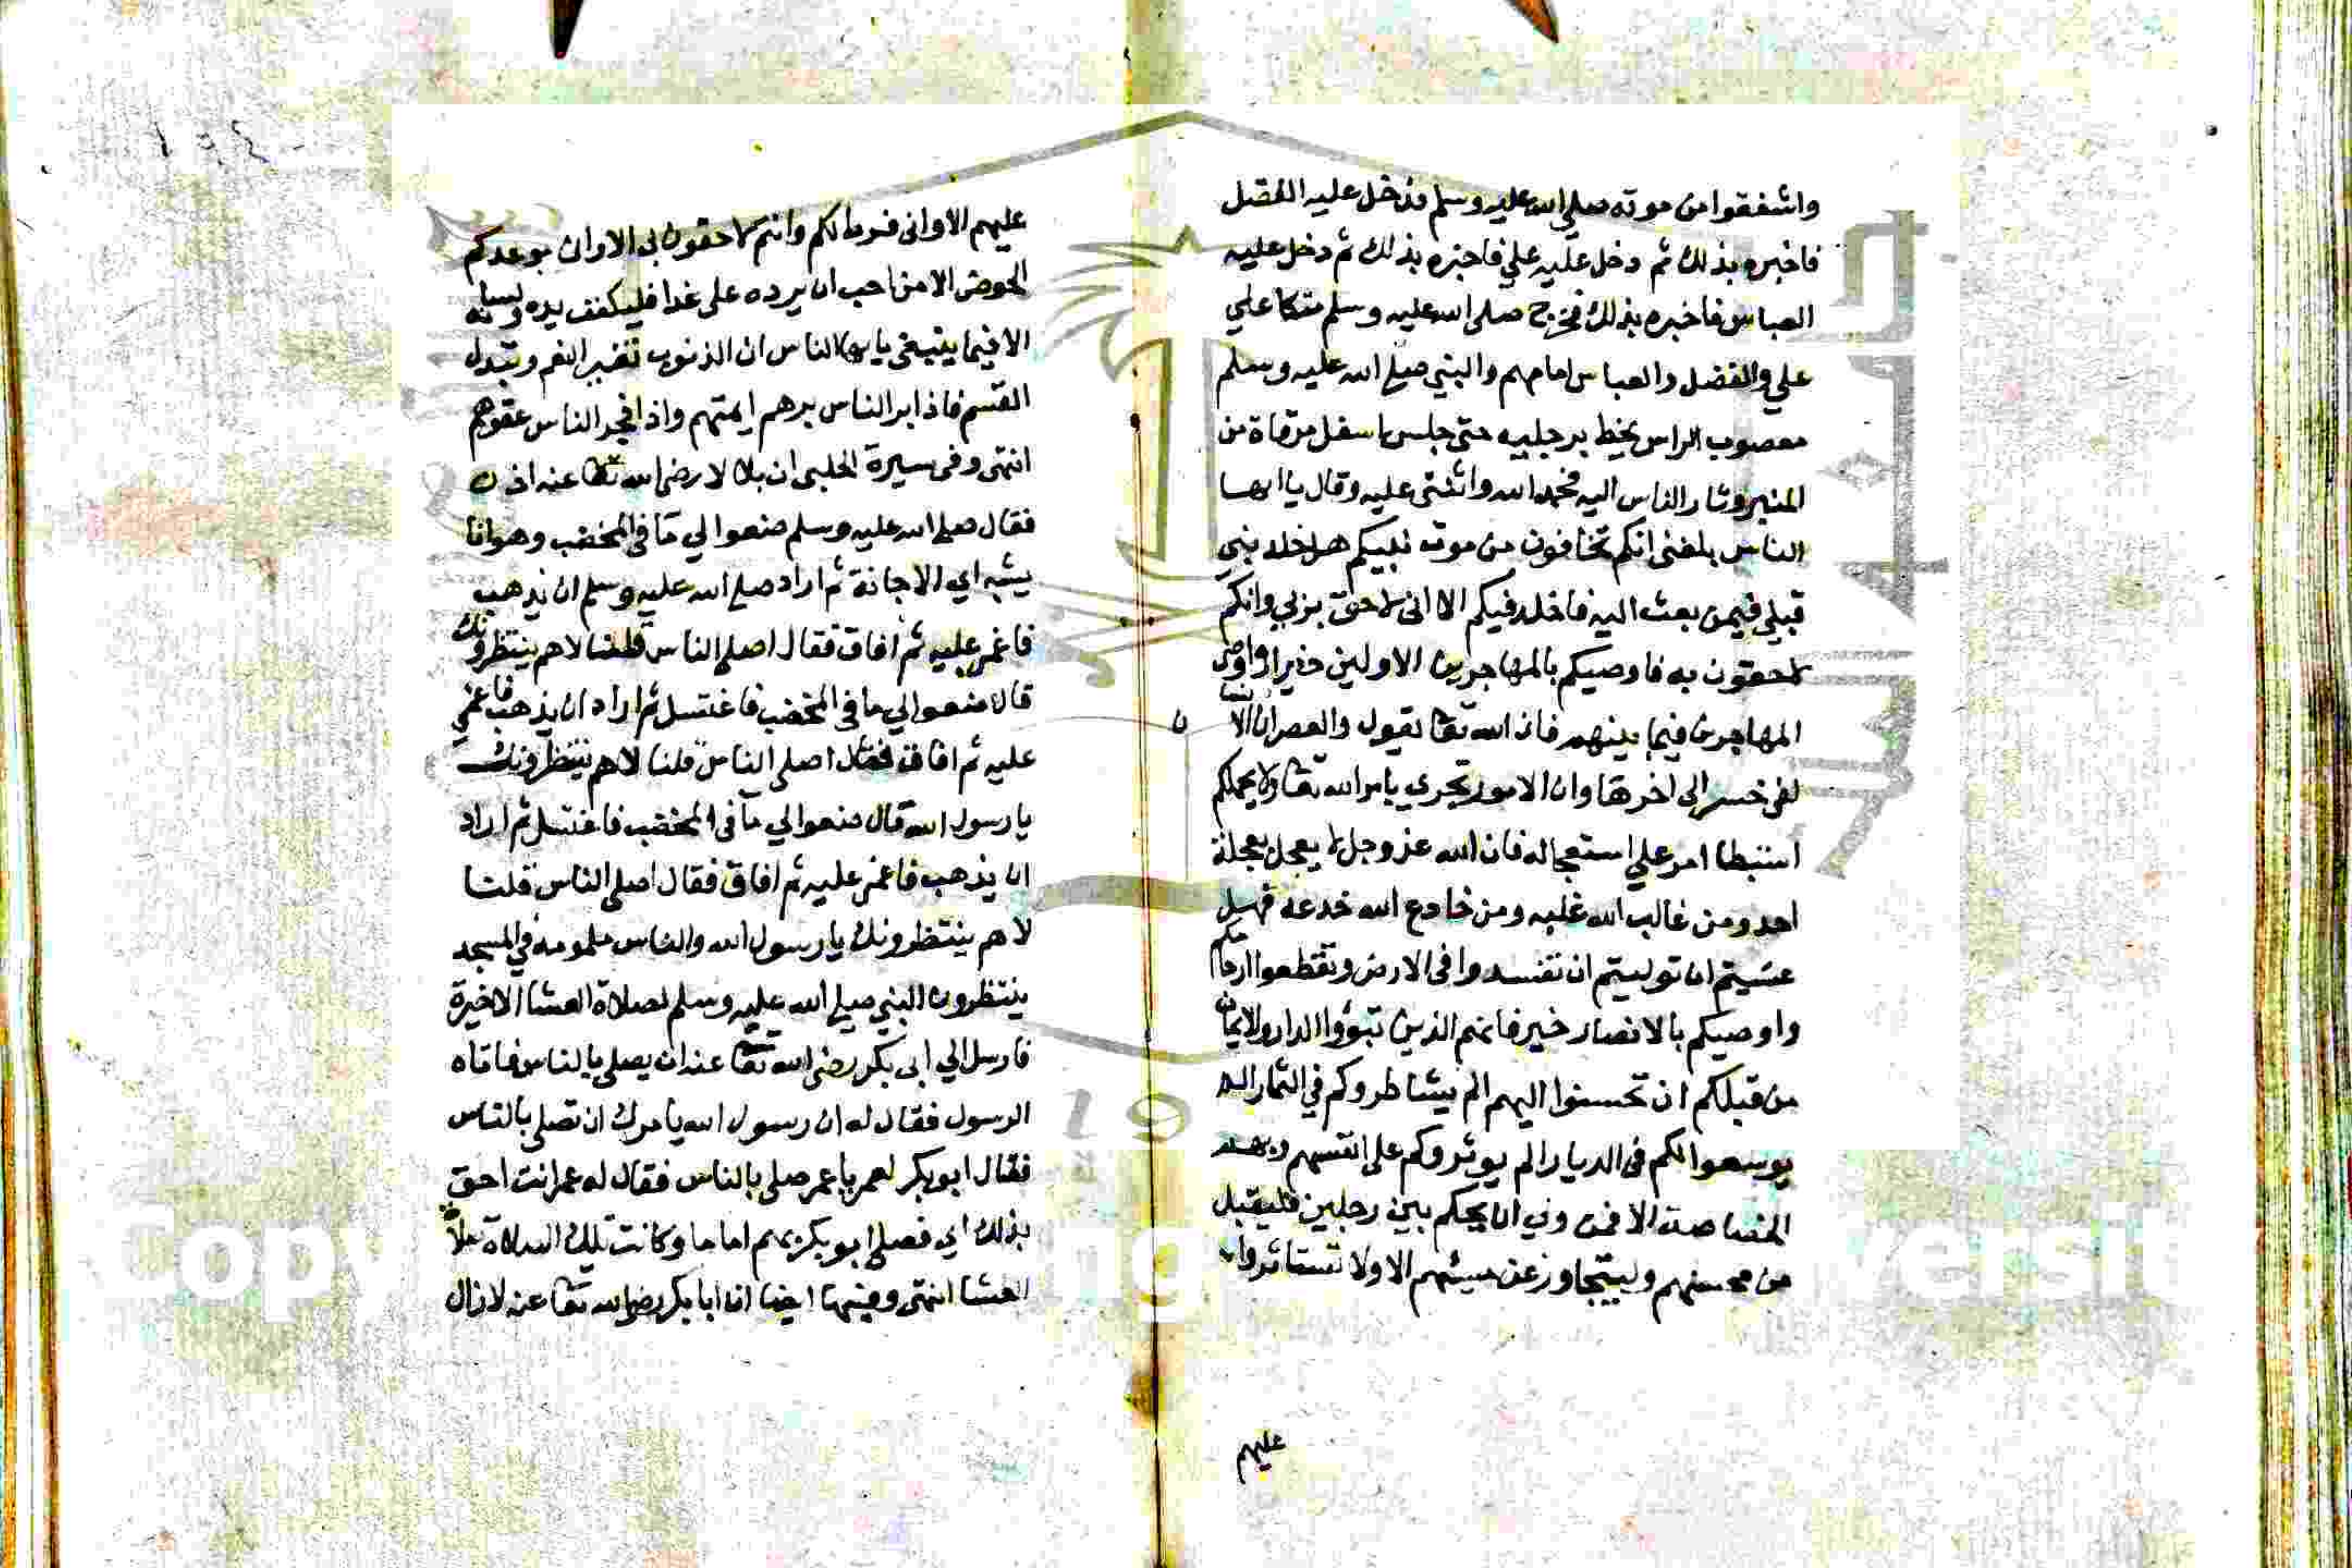 واشفقوا من موته صلى الله عليه وسلم فدخل عليه الفضل
فاخبره بذلك ثم دخل عليه علي فاخبره بذلك ثم دخل عليه
العباس فاخبره بذلك فخرج صلى الله عليه وسلم متكا علي
علي والفضل والعباس امامهم والنبي صلى الله عليه وسلم
معصوب الراس يخط برجليه حتى جلس اسفل مرقاة من
المنبر وثار الناس اليه فحمد الله واثنى عليه وقال يا ايها
الناس بلغني انكم تخافون من موت نبيكم هل خلد نبي
قبلي فيمن بعث اليه فاخلد فيكم الا اني لاحق بربي وانكم
لاحقون به فاوصيكم بالمهاجرين الاولين خيرا واوصى
المهاجرين فيما بينهم فان الله تعا يقول والعصر ان الانسا
لفي خسر الى اخرها وان الامور تجري بامر الله تعا ولا يحملكم
استبطا امر علي استعجاله فان الله عز وجل لا يعجل بعجلة
احد ومن غالب الله غلبه ومن خادع الله خدعه فهل
عسيتم ان توليتم ان تفسدوا في الارض وتقطعوا ارحامكم
واوصيكم بالانصار خير فانهم الذين تبوؤا الدار والايمان
من قبلكم ان تحسنوا اليهم الم يشاطروكم في الثمار الم
يوسعوا لكم في الديار الم يوثروكم على انفسهم وبهم
الخصاصة الا فمن ولي ان يحكم بين رجلين فليقبل
من محسنهم وليتجاوز عن مسيئهم الا ولا تستاثروا
عليهم
عليهم الا واني فرط لكم وانتم لاحقون بي الا وان موعدكم
الحوض الا من احب ان يرده على غدا فليكفف يده ولسانه
الا فيما ينبغي يا ايها الناس ان الذنوب تغير النعم وتبدل
القسم فاذا بر الناس برهم ايمتهم واذا فجر الناس عقوهم
انتهى وفي سيرة الحلبي ان بلالا رضي الله تعا عنه اذن
فقال صلى الله عليه وسلم ضعوا لي مآ في المخضب وهو انا
يشبه اي الاجانة ثم اراد صلى الله عليه وسلم ان يذهب
فاغمي عليه ثم افاق فقال اصلى الناس قلنا لا هم ينتظرونك
قال ضعوا لي ما في المخضب فاغتسل ثم اراد ان يذهب فاغمي
عليه ثم افاق فقال اصلى الناس قلنا لا هم ينتظرونك
يا رسول الله قال ضعوا لي مآ في المخضب فاغتسل ثم اراد
ان يذهب فاغمي عليه ثم افاق فقال اصلى الناس قلنا
لا هم ينتظرونك يا رسول الله والناس ملمومة في المسجد
ينتظرون النبي صلى الله عليه وسلم لصلاة العشا الاخيرة
فارسل الي ابي بكر رضي الله تعا عنه ان يصلي بالناس فاتاه
الرسول فقال له ان رسول الله يامرك ان تصلي بالناس
فقال ابو بكر لعمر يا عمر صلي بالناس فقال له عمر انت احق
بذلك اي فصلى ابو بكر بهم اماما وكانت تلك الصلاة صلاة
العشا انتهى وفيها ايضا ان ابا بكر رضي الله تعا عنه لا زال